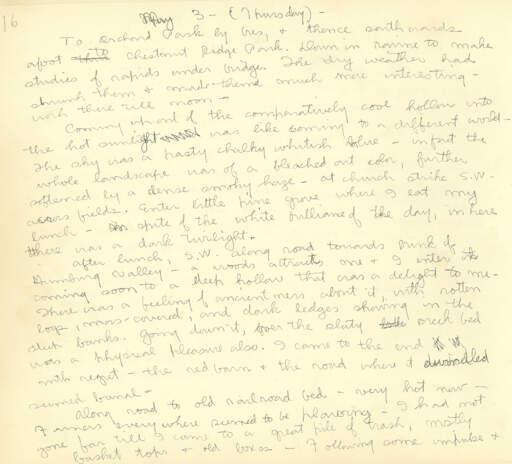 16
May 3 - (Thursday) -
To Orchard Park by bus, & thence southwards
afoot to Chestnut Ridge Park. Down in ravine to make
studies of rapids under bridge. The dry weather had
shrunk them & made them much more interesting -
until there noon -
Coming up out of the comparatively cool hollow into
the hot sunlight was like coming to a different world -
The sky was a pasty chalky whitish blue - in fact the
whole landscape was of a bleached out color, further
softened by a dense smoky haze - at church strike S.W.
across fields. Enter little pine grove where I eat my
lunch - In spite of the white brilliance of the day, in here
there was a dark twilight.
After lunch, S.W. along road towards brink of
valley - a woods attracts me & I enter it
coming soon to a deep hollow that was a delight to me -
There was a feeling of ancientness about it, with rotten
logs, moss-covered, and dark ledges showing in the
steep banks. Going down it, over the slaty creek bed
was a physical pleasure also. I came to the end
with regret - the red barn & the road where it
seemed banal -
Along road to old railroad bed - very hot now -
Farmers everywhere seemed to be plowing - I had not
gone far till I came to a great pile of trash, mostly
basket tops & old boxes - Following some impulse I